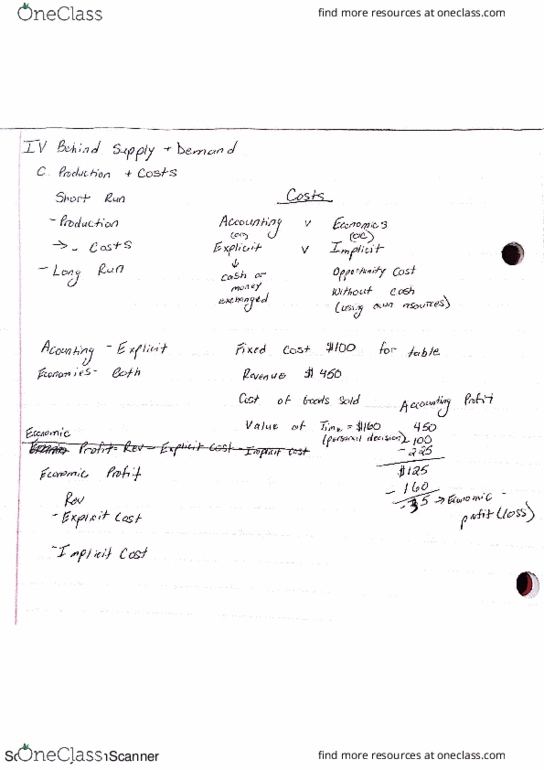 OneClass
find more resources at oneclass.com
IV Behind Supply + Demand
C. Production + Costs
Short Run
Costs
- Production
Accounting v Economics
(OC)
→ - Costs
Explicit v Implicit
- Long Run
↓
cash or
money
exchanged
Opportunity Cost
Without cash
(using own resources)
Acounting - Explicit
Fixed Cost $100 for table
Economies - Both
Revenue $ 450
Cost of Goods Sold
Accounting Profit
Economic
Value of Time = $160
450
Profit = Rev - Explicit Cost - Implicit Cost
(personal decision)
- 100
- 225
Economic Profit
$125
- 160
Rev
-35 → Economic
profit (loss)
- Explicit Cost
- Implicit Cost
OneClass
Scanner
find more resources at oneclass.com